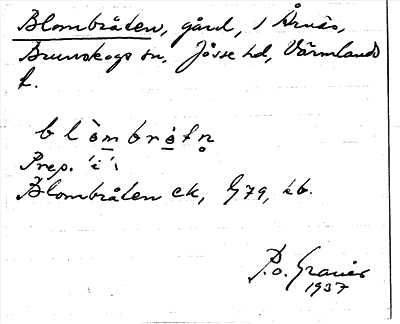 Blombråten, gård, i Årnäs,
Brunskogs sn, Jösse hd, Värmlands
l.
blòmbrå̀tn̥
Prep. 'i'.
Blombråten ek, G79, kb.
P.O. Granér
1937